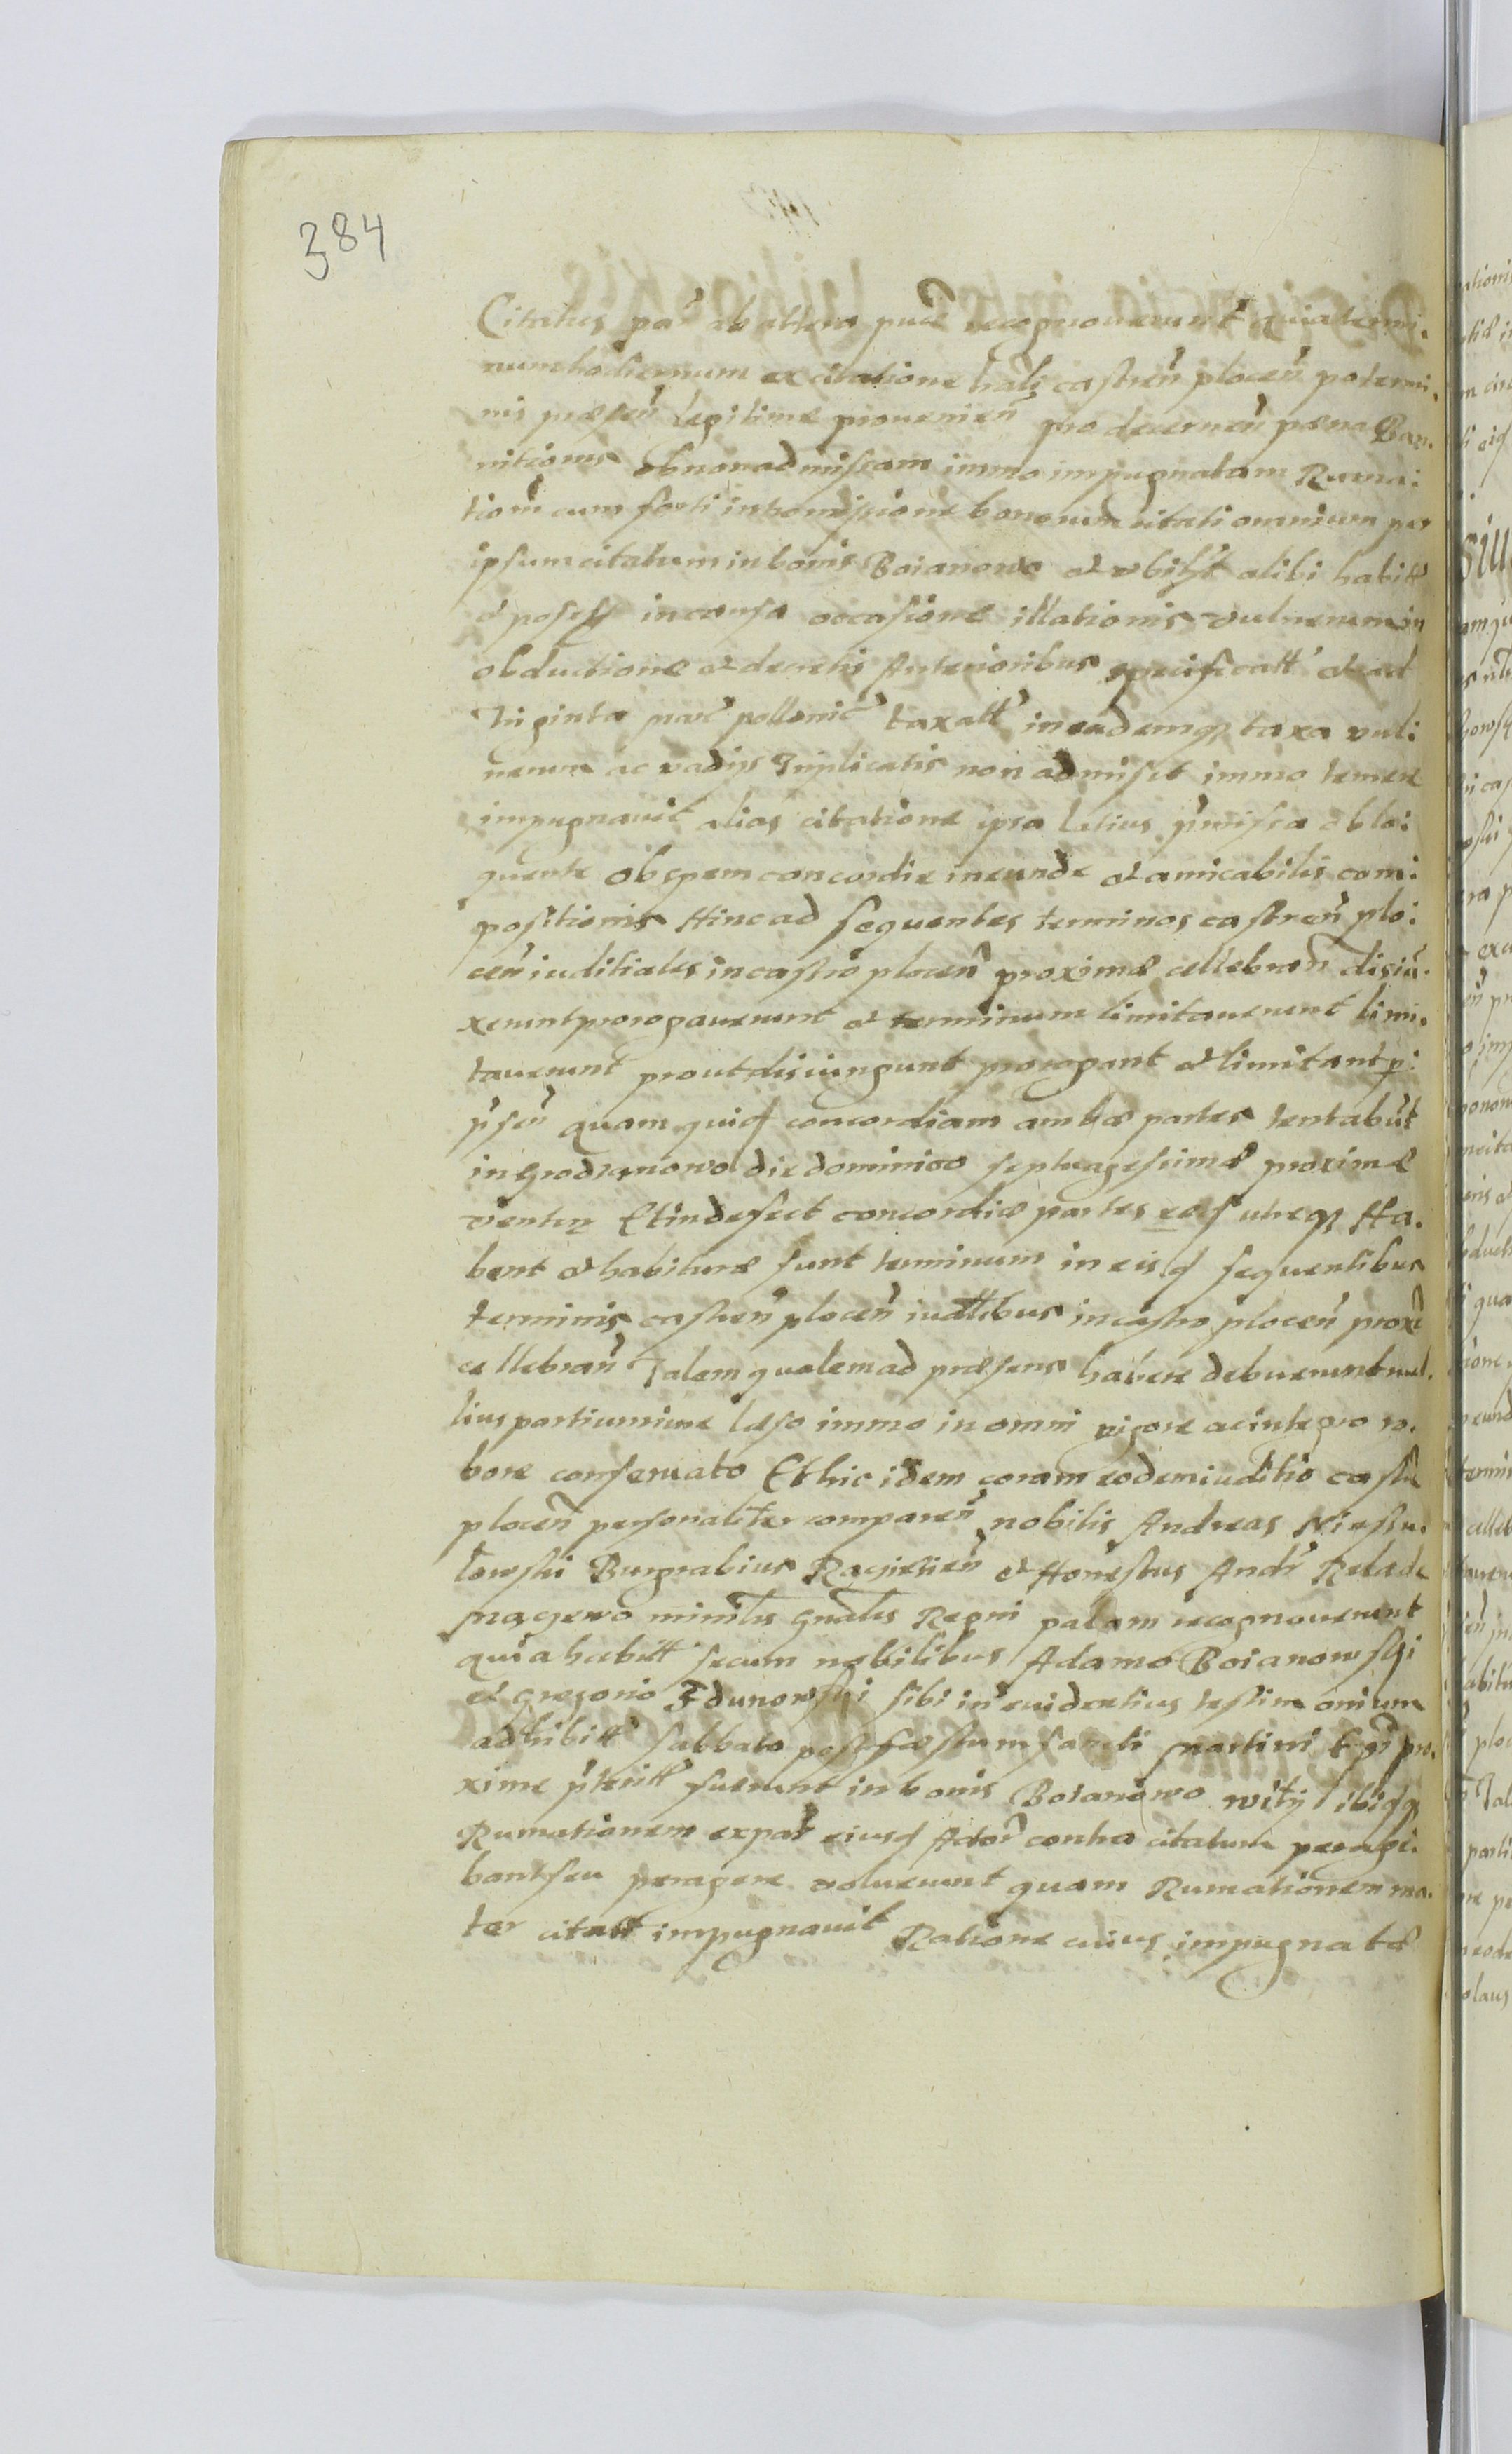 384
Citatus par ab altera puce recognouerunt quia termi.
num hodiernum ex citatione hali castren plocen potermi.
nis præsen Legitime prouenien pro decernen pæna Ban.
nitionis ob non admissam immo impugnatam Rumai
tiom cum forti intromissione bonorum citati omnium per
ipsum citatum in bonis Boianowo et ubiht alibi habitt
et possess in causa occasione illationis vulnerum in
obductione et decretis Anterioribus specificatt et ad
Triginta marc pollonic taxatt in eademq taxa vuli
nerum ac vadys Triplicatis non admisit immo temere
impugnavit alias citatione ipsa Latius pmissa oblo:
quente ob spem concordie ineunde et amicabilis com:
positionis Hinc ad sequentes terminos castren plo:
cen iuditiales in castro plocen proximæ cellebran disiu.
xerunt prorogauerunt et terminum limitauerunt limi.
tauerunt prout disiungunt prorogant et limitant p:
psen quam quid concordiam ambæ partes tentabut
in Grodzanowo die dominico septuagesimæ proximæ
ventur Et in defect concordiæ partes eæd utreq Ha.
bent et habituræ sunt terminum in eisd sequentibus
terminis castren plocen iudtlibus in castro plocen prox
cellebran Talem qualem ad præsens habere debuerunt nul.
lius partium iure læso immo in omni vigore ac integro ro.
bore conseruato Et hic idem coram eodem iuditio castr
plocen personaliter comparen nobilis Andreas Niestu.
lowski Burgrabius Raciesien et Honestus Andr Relade
magewo minilis gnalis Regni palam recognouerunt
quia habitt secum nobilibus Adamo Boianowski
et gregorio Zdunowski sibi in euidentius testimonium
adhibitt sabbato post fæstum sancti martini Epi pro.
xime pteritt fuerunt in bonis Boianowo wity ibiqq
Rumationem ex par eiusd Actor contra citatum peragi.
bant seu peragere voluerunt quam Rumationem ma.
ter citatt impugnauit Ratione cuius impugnatæ